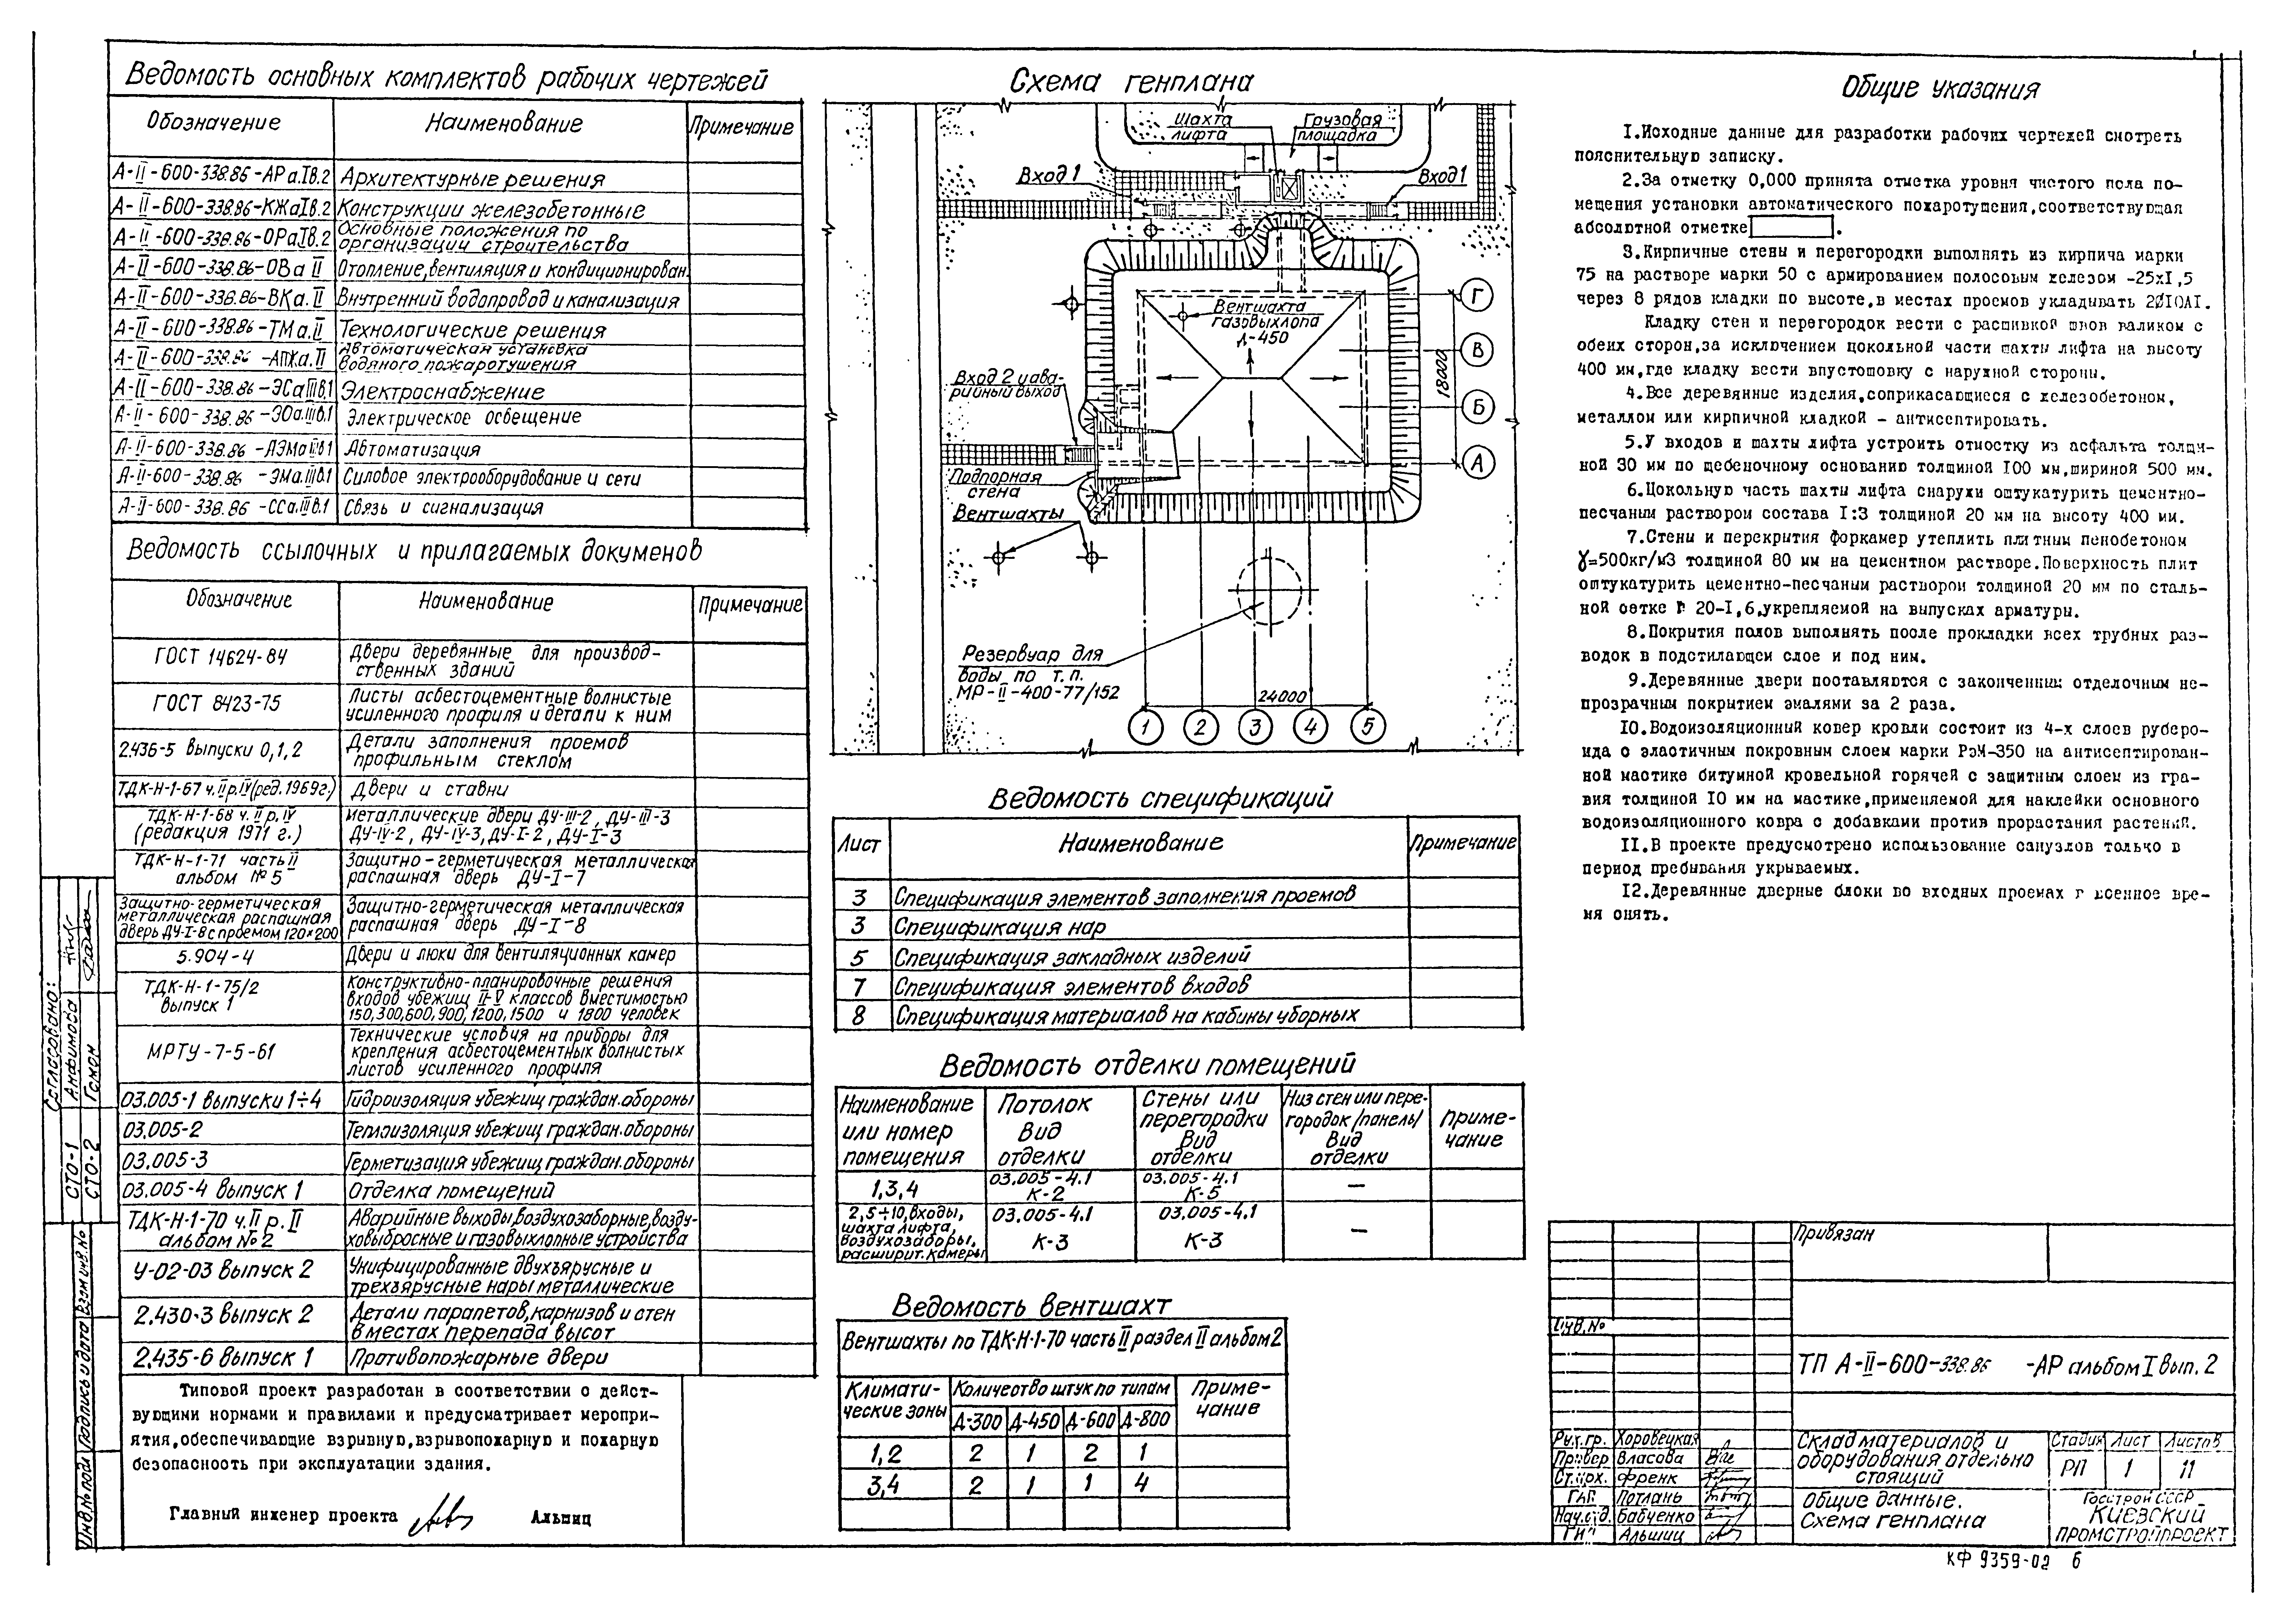 Ведомость основных комплектов рабочих чертежей
Обозначение Наименование Примечание
А-II-600-338.86-АР а.Iв.2 Архитектурные решения
А-II-600-338.86-КЖаIв.2 Конструкции железобетонные
А-II-600-338.86-ОРаIв.2 Основные положения по
организации строительства
А-II-600-338.86-ОВа II Отопление, вентиляция и кондиционирован.
А-II-600-338.86-ВКа.II Внутренний водопровод и канализация
А-II-600-338.86-ТМа.II Технологические решения
А-II-600-338.86 -АПЖа.II Автоматическая установка
водяного пожаротушения
А-II-600-338.86 -ЭСаIIIв.1 Электроснабжение
А-II-600-338.86 -ЭОа.IIIв.1 Электрическое освещение
А-II-600-338.86 -АЭМаIIIв.1 Автоматизация
А-II-600-338.86 -ЭМа.IIIв.1 Силовое электрооборудование и сети
А-II-600-338.86 -ССа.IIIв.1 Связь и сигнализация
Ведомость ссылочных и прилагаемых докуменов
Обозначение Наименование Примечание
ГОСТ 14624-84 Двери деревянные для производ-
ственных зданий
ГОСТ 8423-75 Листы асбестоцементные волнистые
усиленного профиля и детали к ним
2.436-5 выпуски 0,1,2 Детали заполнения проемов
профильным стеклом
ТДК-Н-1-67 ч.II р.IV (ред.1969г.) Двери и ставни
ТДК-Н-1-68 ч.II р.IV
(редакция 1971 г.)
Металлические двери ДУ-III-2, ДУ-III-3
ДУ-IV-2, ДУ-IV-3, ДУ-I-2, ДУ-I-3
ТДК-Н-1-71 часть II
альбом №5
Защитно-герметическая металлическая
распашная дверь ДУ-I-7
Защитно-герметическая
металлическая распашная
дверь ДУ-I-8 с проемом 120×200
Защитно-герметическая металлическая
распашная дверь ДУ-I-8
5.904-4 Двери и люки для вентиляционных камер
ТДК-Н-1-75/2
выпуск 1
Конструктивно-планировочные решения
входов убежищ II-V классов вместимостью
150,300,600,900,1200,1500 и 1800 человек
МРТУ-7-5-61 Технические условия на приборы для
крепления асбестоцементных волнистых
листов усиленного профиля
03.005-1 выпуски 1÷4 Гидроизоляция убежищ граждан.обороны
03.005-2 Теплоизоляция убежищ граждан.обороны
03.005-3 Герметизация убежищ граждан.обороны
03.005-4 выпуск 1 Отделка помещений
ТДК-Н-1-70 ч.II р.II
альбом №2
Аварийные выходы, воздухозаборные, возду-
ховыбросные и газовыхлопные устройства
У-02-03 выпуск 2 Унифицированные двухъярусные и
трехъярусные нары металлические
2.430-3 выпуск 2 Детали парапетов, карнизов и стен
в местах перепада высот
2.435-6 выпуск 1 Противопожарные двери
Типовой проект разработан в соответствии с дейст-
вующими нормами и правилами и предусматривает меропри-
ятия,обеспечивающие взрывную,взрывопожарную и пожарную
безопасность при эксплуатации здания.
Главный инженер проекта Альшиц
Согласовано:
СТО-1 Анфимова
СТО-2 Гомон
Инв.№ подл Подпись и дата Взам инв.№
Схема генплана
Шахта
лифта
Грузовая
площадка
Вход 1
Вход 1
Вентшахта
газовыхлопа
Д-450
Вход 2 и ава-
рийный выход
Подпорная
стена
Вентшахты
Резервуар для
воды по т.п.
МР-II-400-77/152
Г
В
Б
А
18000
24000
1 2 3 4 5
Ведомость спецификаций
Лист Наименование Примечание
3 Спецификация элементов заполнения проемов
3 Спецификация нар
5 Спецификация закладных изделий
7 Спецификация элементов входов
8 Спецификация материалов на кабины уборных
Ведомость отделки помещений
Наименование
или номер
помещения
Потолок
Вид
отделки
Стены или
перегородки
Вид
отделки
Низ стен или пере-
городок /панель/
Вид
отделки
Приме-
чание
1,3,4 03.005-4.1
К-2
03.005-4.1
К-5
—
2,5÷10,входы,
шахта лифта,
воздухозаборы,
расширит.камеры
03.005-4.1
К-3
03.005-4.1
К-3
—
Ведомость вентшахт
Вентшахты по ТДК-Н-1-70 часть II раздел II альбом 2
Климати-
ческие зоны
Количество штук по типам
Приме-
чание
Д-300 Д-450 Д-600 Д-800
1,2 2 1 2 1
3,4 2 1 1 4
Общие указания
1.Исходные данные для разработки рабочих чертежей смотреть
пояснительную записку.
2.За отметку 0,000 принята отметка уровня чистого пола по-
мещения установки автоматического пожаротушения,соответствующая
абсолютной отметке .
3.Кирпичные стены и перегородки выполнять из кирпича марки
75 на растворе марки 50 с армированием полосовым железом -25х1,5
через 8 рядов кладки по высоте,в местах проемов укладывать 2Ø10АI.
Кладку стен и перегородок вести с расшивкой швов валиком с
обеих сторон,за исключением цокольной части шахты лифта на высоту
400 мм,где кладку вести впустошовку с наружной стороны.
4.Все деревянные изделия,соприкасающиеся с железобетоном,
металлом или кирпичной кладкой - антисептировать.
5.У входов и шахты лифта устроить отмостку из асфальта толщи-
ной 30 мм по щебеночному основанию толщиной 100 мм,шириной 500 мм.
6.Цокольную часть шахты лифта снаружи оштукатурить цементно-
песчаным раствором состава 1:3 толщиной 20 мм на высоту 400 мм.
7.Стены и перекрытия форкамер утеплить плитным пенобетоном
γ=500кг/м3 толщиной 80 мм на цементном растворе.Поверхность плит
оштукатурить цементно-песчаным раствором толщиной 20 мм по сталь-
ной сетке № 20-1,6,укрепляемой на выпусках арматуры.
8.Покрытия полов выполнять после прокладки всех трубных раз-
водок в подстилающем слое и под ним.
9.Деревянные двери поставляются с законченным отделочным не-
прозрачным покрытием эмалями за 2 раза.
10.Водоизоляционный ковер кровли состоит из 4-х слоев руберо-
ида с эластичным покровным слоем марки РэМ-350 на антисептирован-
ной мастике битумной кровельной горячей с защитным слоем из гра-
вия толщиной 10 мм на мастике,применяемой для наклейки основного
водоизоляционного ковра с добавками против прорастания растений.
11.В проекте предусмотрено использование санузлов только в
период пребывания укрываемых.
12.Деревянные дверные блоки во входных проемах в военное вре-
мя снять.
Привязан
Инв.№
ТП А-II-600-338.86 -АР альбом I вып. 2
Рук.гр. Хоровецкая
Провер Власова
Ст.арх. Френк
ГАП Потлань
Нач.отд. Бабченко
ГИП Альшиц
Склад материалов и
оборудования отдельно
стоящий
Стадия Лист Листов
РП 1 11
Общие данные.
Схема генплана
Госстрой СССР
КИЕВСКИЙ
ПРОМСТРОЙПРОЕКТ
КФ 9359-02 6